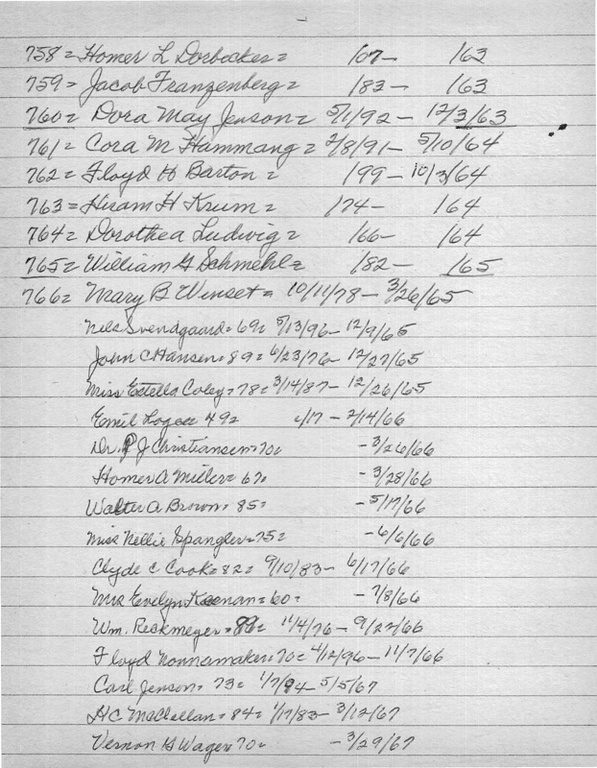 758 = Homer L Dorbecker = 107 - 163
759 = Jacob Franzenberg = 183 - 163
760 = Dora May Jenson = 5/1/92 - 12/3/63
761 = Cora M Hammang = 2/8/91 - 5/10/64
762 = Floyd H Barton = 199 - 10/3/64
763 = Hiram H Krum = 174 - 164
764 = Dorothea Ludwig = 166 - 164
765 = William G Schmehl = 182 - 165
766 = Mary B Winset = 10/11/78 - 3/26/65
Nels Svendgaard = 69 = 5/13/96 - 12/9/65
John C Hansen = 89 = 6/23/76 - 12/27/65
Miss Estella Coley = 78 = 3/14/87 - 12/26/65
Emil 49 = /17 - 2/14/66
Dr. P J Christiansen = 70 = - 3/26/66
Homer A Miller = 67 = - 3/28/66
Walter A Brown = 85 = - 5/17/66
Miss Nellie Spangler = 75 = - 6/6/66
Clyde C Cook = 82 = 9/10/83 - 6/17/66
Mrs Evelyn Keenan = 60 = - 7/8/66
Wm. Reckmeyer = 89 = 11/4/76 - 9/22/66
Floyd Nonnamaker = 70 = 4/12/96 - 11/7/66
Carl Jenson = 73 = 1/7/94 - 5/5/67
H C MacClellan = 84 = 1/17/83 - 3/12/67
Vernon H Wager 70 = - 3/29/67